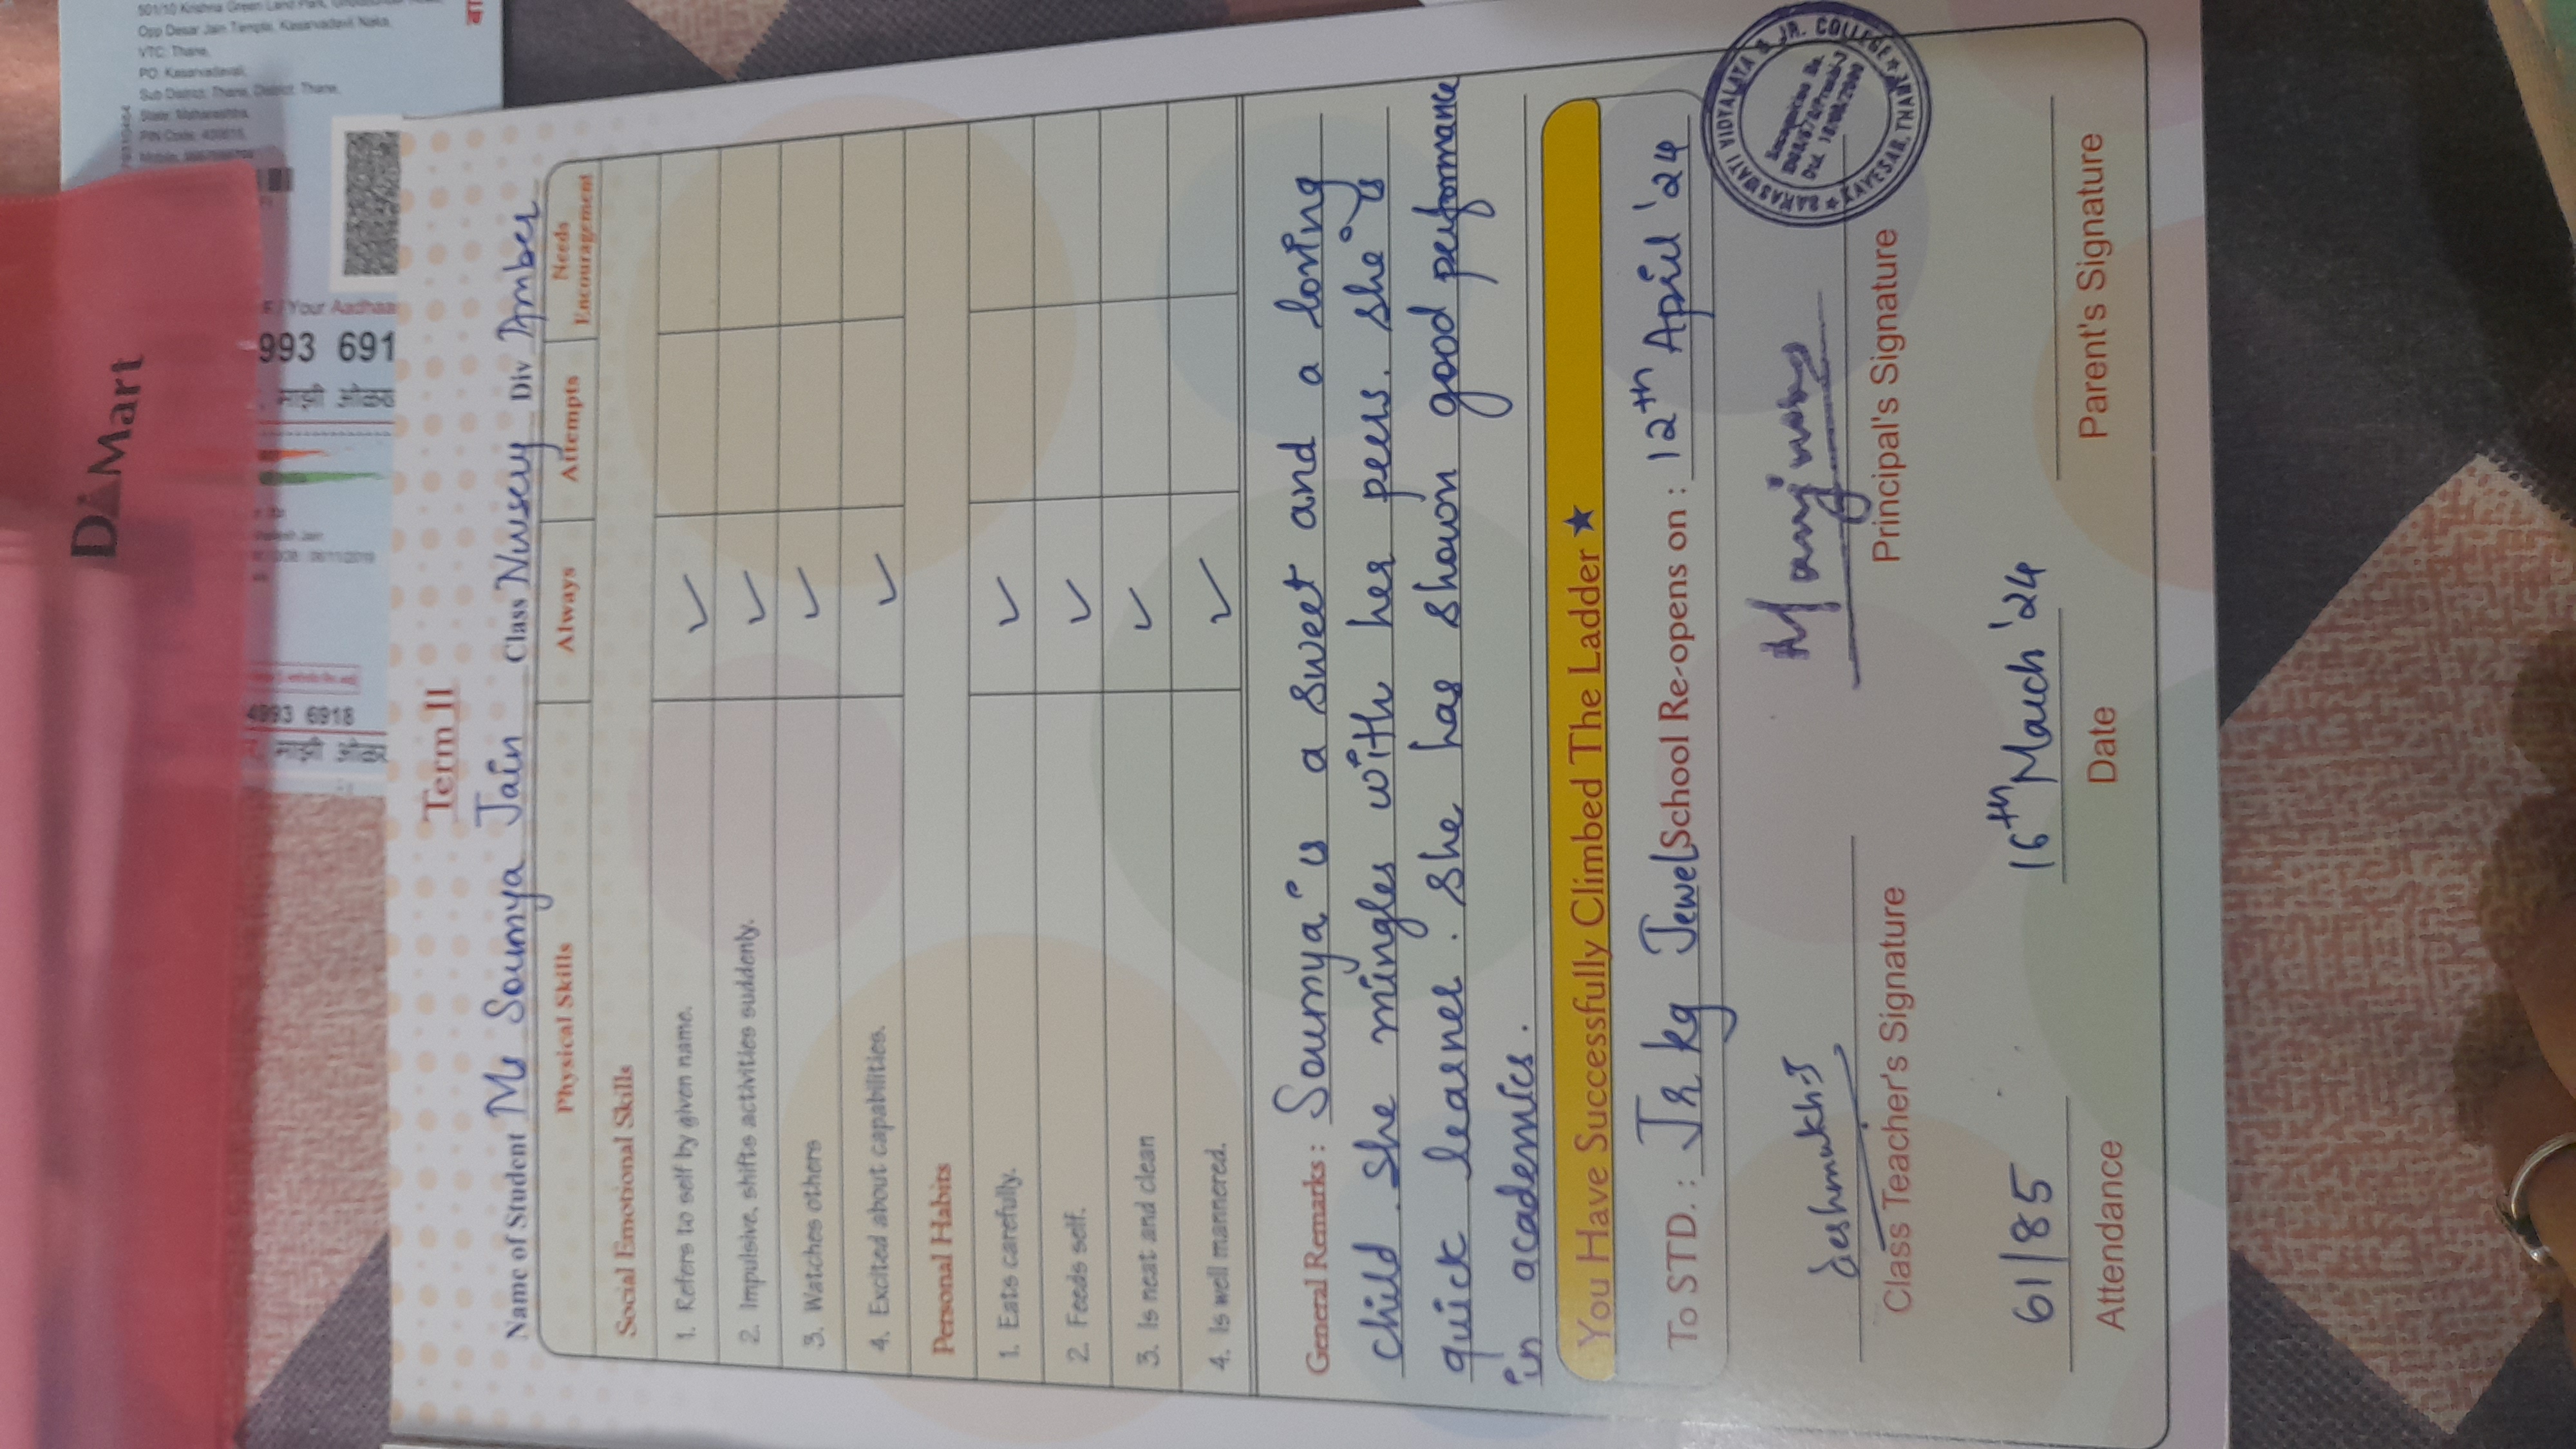 501/10 Krishna Green Land Park,
Opp Desar Jain Temple, Kasarvadavli Naka,
VTC: Thane,
PO: Kasarvadavali,
Sub District: Thane, District: Thane,
State: Maharashtra,
PIN Code:
Mobile:
Your Aadhaa
993 691
माझी ओळख
4993 6918
माझी ओळख
DMart
Term II
Name of Student Ms Soumya Jain Class Nursery Div Amber
Physical Skills Always Attempts Needs Encouragement
Social Emotional Skills
1. Refers to self by given name. ✓
2. Impulsive, shifts activities suddenly. ✓
3. Watches others ✓
4. Excited about capabilities. ✓
Personal Habits
1. Eats carefully. ✓
2. Feeds self. ✓
3. Is neat and clean ✓
4. Is well mannered. ✓
General Remarks : Soumya is a sweet and a loving
child. She mingles with her peers. She is
quick learner. She has shown good performance
in academics.
You Have Successfully Climbed The Ladder ★
To STD. : Jr kg Jewel School Re-opens on : 12th April '24
Deshmukh
Class Teacher's Signature
Principal's Signature
SARASWATI VIDYALAYA & JR. COLLEGE ★ KAVESAR, THANE ★
Recognition No.
61/85
Attendance
16th March '24
Date
Parent's Signature